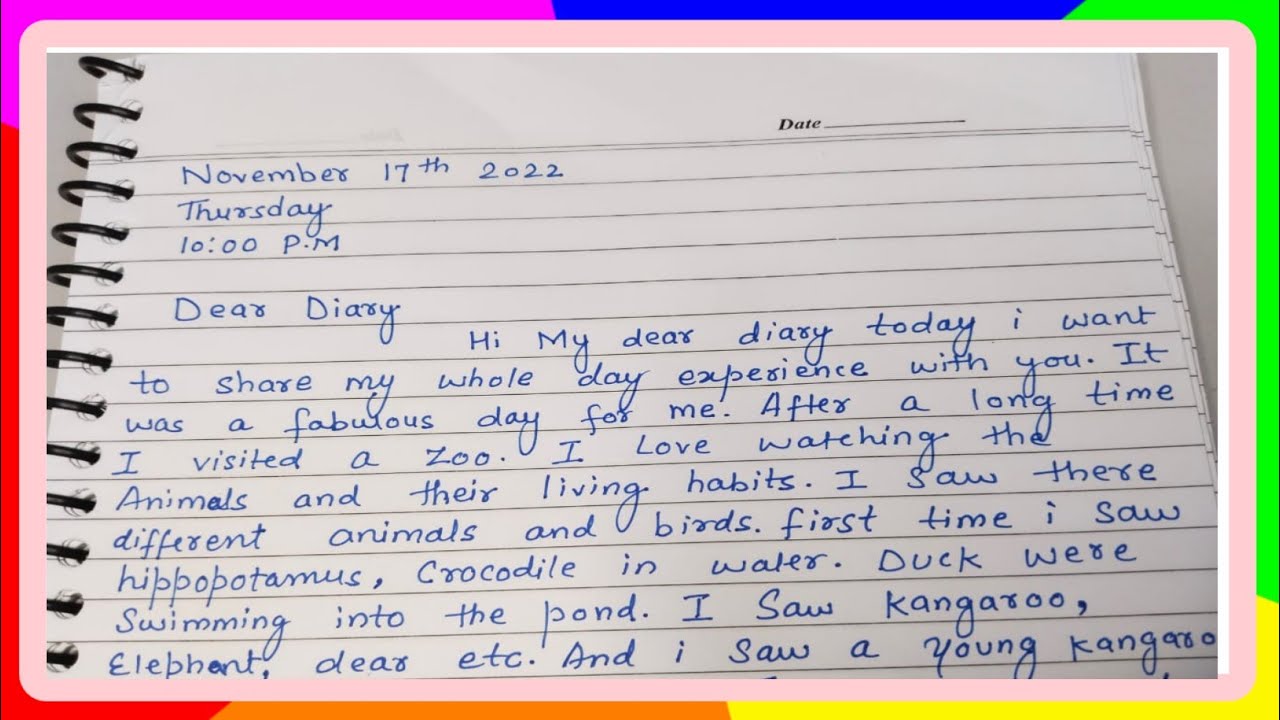 Date
November 17th 2022
Thursday
10:00 P.M
Dear Diary
Hi My dear diary today i want
to share my whole day experience with you. It
was a fabulous day for me. After a long time
I visited a zoo. I Love watching the
Animals and their living habits. I saw there
different animals and birds. first time i saw
hippopotamus, Crocodile in water. Duck were
Swimming into the pond. I Saw Kangaroo,
Elephant, dear etc. And i saw a young kangaro